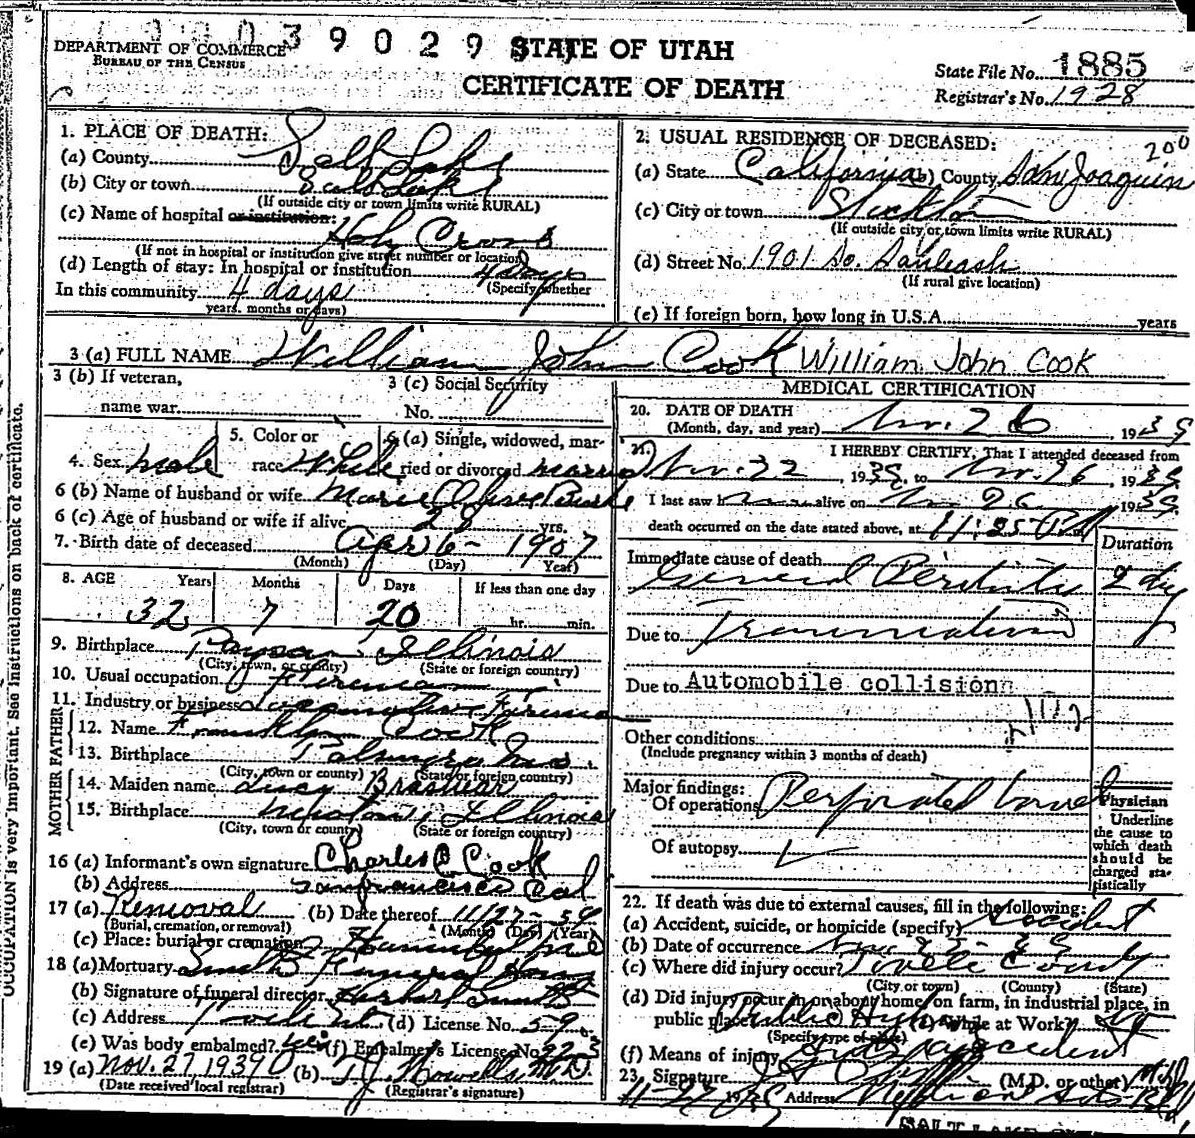 39029
STATE OF UTAH
CERTIFICATE OF DEATH
DEPARTMENT OF COMMERCE
BUREAU OF THE CENSUS
State File No. 1885
Registrar's No. 1928
1. PLACE OF DEATH:
(a) County Salt Lake
(b) City or town Salt Lake
(If outside city or town limits write RURAL)
(c) Name of hospital or institution:
Holy Cross
(If not in hospital or institution give street number or location)
(d) Length of stay: In hospital or institution 4 days
(Specify whether
In this community 4 days
years, months or days)
2. USUAL RESIDENCE OF DECEASED: 200
(a) State California (b) County San Joaquin
(c) City or town Stockton
(If outside city or town limits write RURAL)
(d) Street No. 1901 So.
(If rural give location)
(e) If foreign born, how long in U.S.A. years
3 (a) FULL NAME William John Cook William John Cook
3 (b) If veteran,
name war
3 (c) Social Security
No.
4. Sex male
5. Color or
race White
6 (a) Single, widowed, mar-
ried or divorced married
6 (b) Name of husband or wife Marie
6 (c) Age of husband or wife if alive 28 yrs.
7. Birth date of deceased Apr 6 - 1907
(Month) (Day) Year)
8. AGE Years Months Days If less than one day
32 7 20 hr. min.
9. Birthplace Payson Illinois
(City, town, or county) (State or foreign country)
10. Usual occupation Fireman
11. Industry or business Locomotive Fireman
MOTHER FATHER
12. Name Franklin Cook
13. Birthplace Palmyra Mo.
(City, town or county) (State or foreign country)
14. Maiden name Lucy Brashear
15. Birthplace Illinois
(City, town or county) (State or foreign country)
16 (a) Informant's own signature Charles B Cook
(b) Address San Francisco Cal
17 (a) Removal (b) Date thereof 11/27-39
(Burial, cremation, or removal) (Month) (Day) (Year)
(c) Place: burial or cremation
18 (a) Mortuary Smith Funeral Home
(b) Signature of funeral director Herbert Smith
(c) Address Tooele Ut (d) License No. 59
(e) Was body embalmed? (f) Embalmer's License No.
19 (a) NOV. 27, 1939 (b) T.J. Howells M.D.
(Date received local registrar) (Registrar's signature)
MEDICAL CERTIFICATION
20. DATE OF DEATH
(Month, day, and year) Nov. 26, 1939
21. I HEREBY CERTIFY, That I attended deceased from
Nov. 22, 1939, to Nov. 26, 1939
I last saw him alive on Nov 26 1939
death occurred on the date stated above, at 11:25 PM
Duration
Immediate cause of death
General Peritonitis 2 dy
Due to
Due to Automobile collision
Other conditions
(Include pregnancy within 3 months of death)
Major findings:
Of operations Perforated bowel
Of autopsy
Physician
Underline
the cause to
which death
should be
charged sta-
tistically
22. If death was due to external causes, fill in the following:
(a) Accident, suicide, or homicide (specify) Accident
(b) Date of occurrence
(c) Where did injury occur? Tooele County
(City or town) (County) (State)
(d) Did injury occur in or about home, on farm, in industrial place, in
public place? Public Hyway (e) While at Work? no
(Specify type of place)
(f) Means of injury Auto accident
23. Signature (M.D. or other)
11-27 1939 Address
OCCUPATION is very important. See instructions on back of certificate.